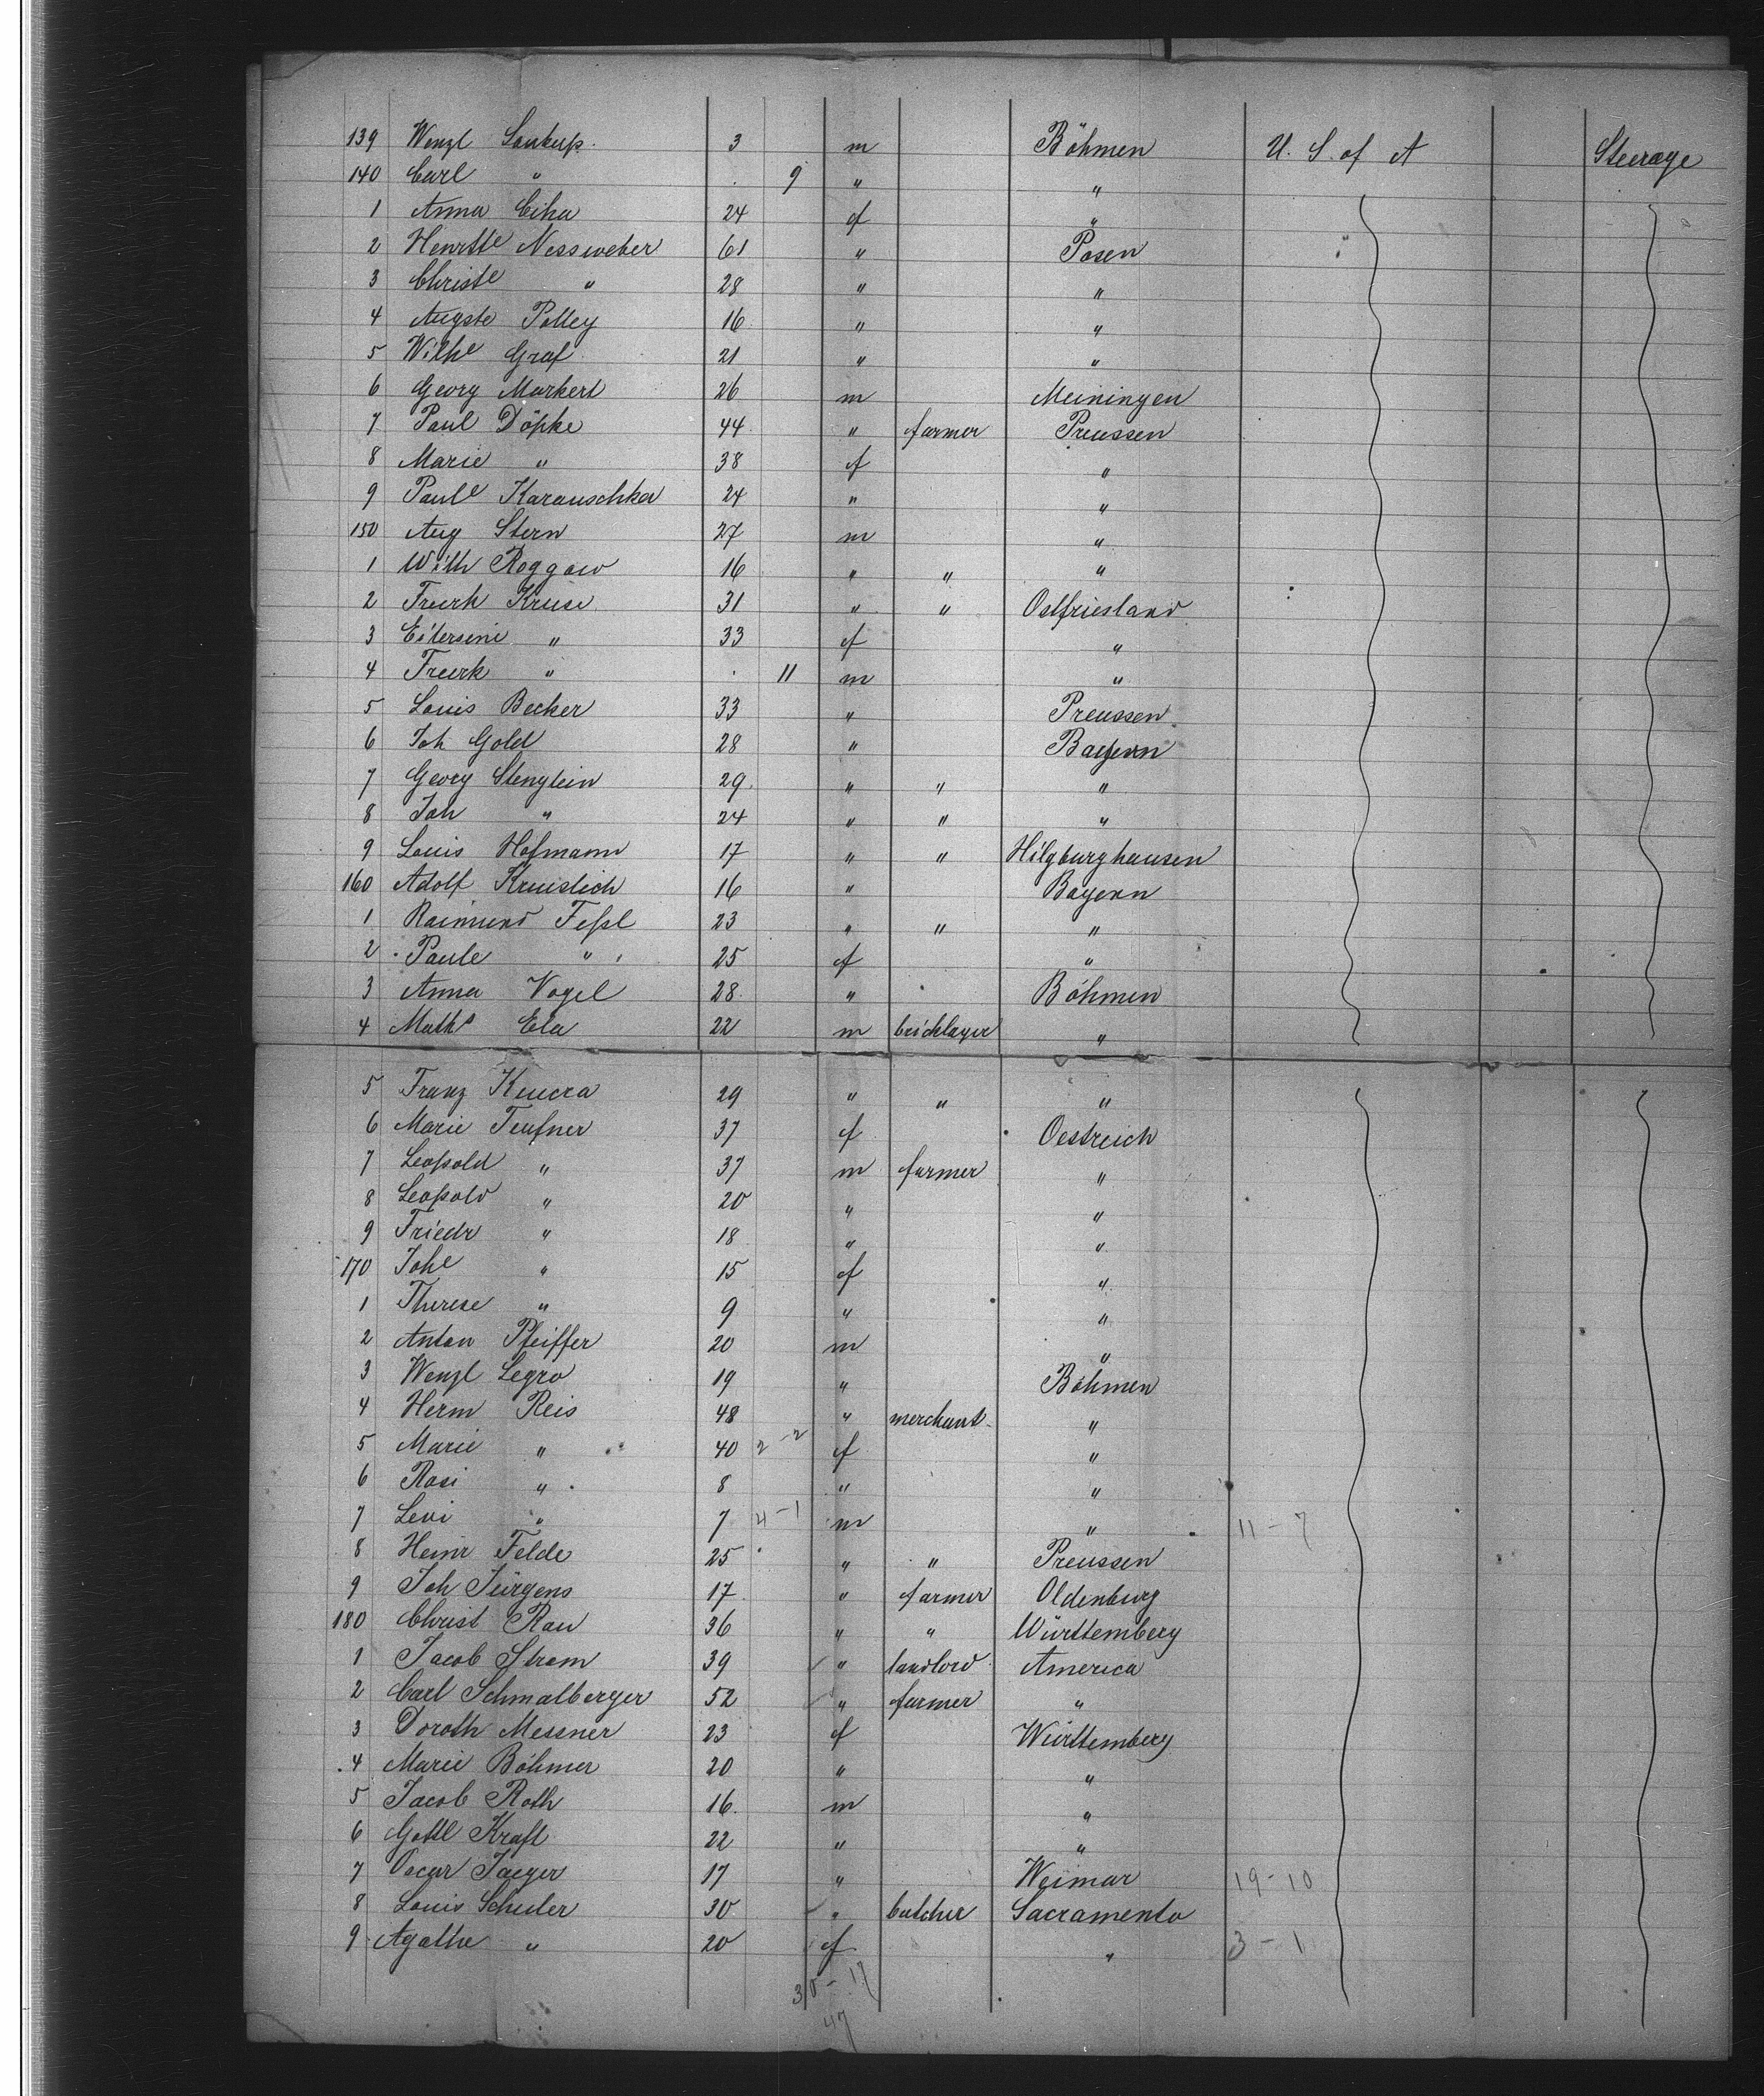 139 Wenzl Soukup. 3 m Böhmen U. S. of A Steerage
140 Carl " . 9 " "
1 Anna Ciha 24 f "
2 Henrtte Nessweber 61 " Posen
3 Christe " 28 " "
4 Augste Polley 16 " "
5 Wilhe Graf 21 " "
6 Georg Markert 26 m Meiningen
7 Paul Döpke 44 " farmer Preussen
8 Marie " 38 f "
9 Paule Karauschka 24 " "
150 Aug Stern 27 m "
1 Wilh Roggow 16 " " "
2 Freerk Kruse 31 " " Ostfriesland
3 Eilersene " 33 f "
4 Freerk " . 11 m "
5 Louis Becker 33 " Preussen
6 Joh Gold 28 " Bayern
7 Georg Stenglein 29. " " "
8 Joh " 24 " " "
9 Louis Hofmann 17 " " Hilgburghausen
160 Adolf 16 " Bayern
1 Raimund Feßl 23 " " "
2 Paule " 25 f "
3 Anna Vogel 28 " Böhmen
4 Maths Ela 22 m bricklayer "
5 Franz Kucera 29 " " "
6 Marie Teufner 37 f Oestreich
7 Leopold " 37 m farmer "
8 Leopold " 20 " "
9 Friedr " 18 " "
170 Johe " 15 f "
1 Therese " 9 " "
2 Anton Pfeiffer 20 m "
3 Wenzl Legro 19 " Böhmen
4 Herm Reis 48 " merchant "
5 Marie " 40 2-2 f "
6 Rosi " 8 " "
7 Levi " 7 4-1 m " 11-7
8 Heinr Felde 25 " " Preussen
9 Joh Jürgens 17 " farmer Oldenburg
180 Christ Rau 36 " " Württemberg
1 Jacob Strom 39 " landlord America
2 Carl Schmalberger 52 " farmer "
3 Doroth Messner 23 f Württemberg
4 Marie Böhmer 20 " "
5 Jacob Roth 16. m "
6 Gottl Kraft 22 " "
7 Oscar Jaeger 17 " Weimar 19-10
8 Louis Schuler 30 " butcher Sacramento
9 Agathe " 20 f " 3-1
30-17
47